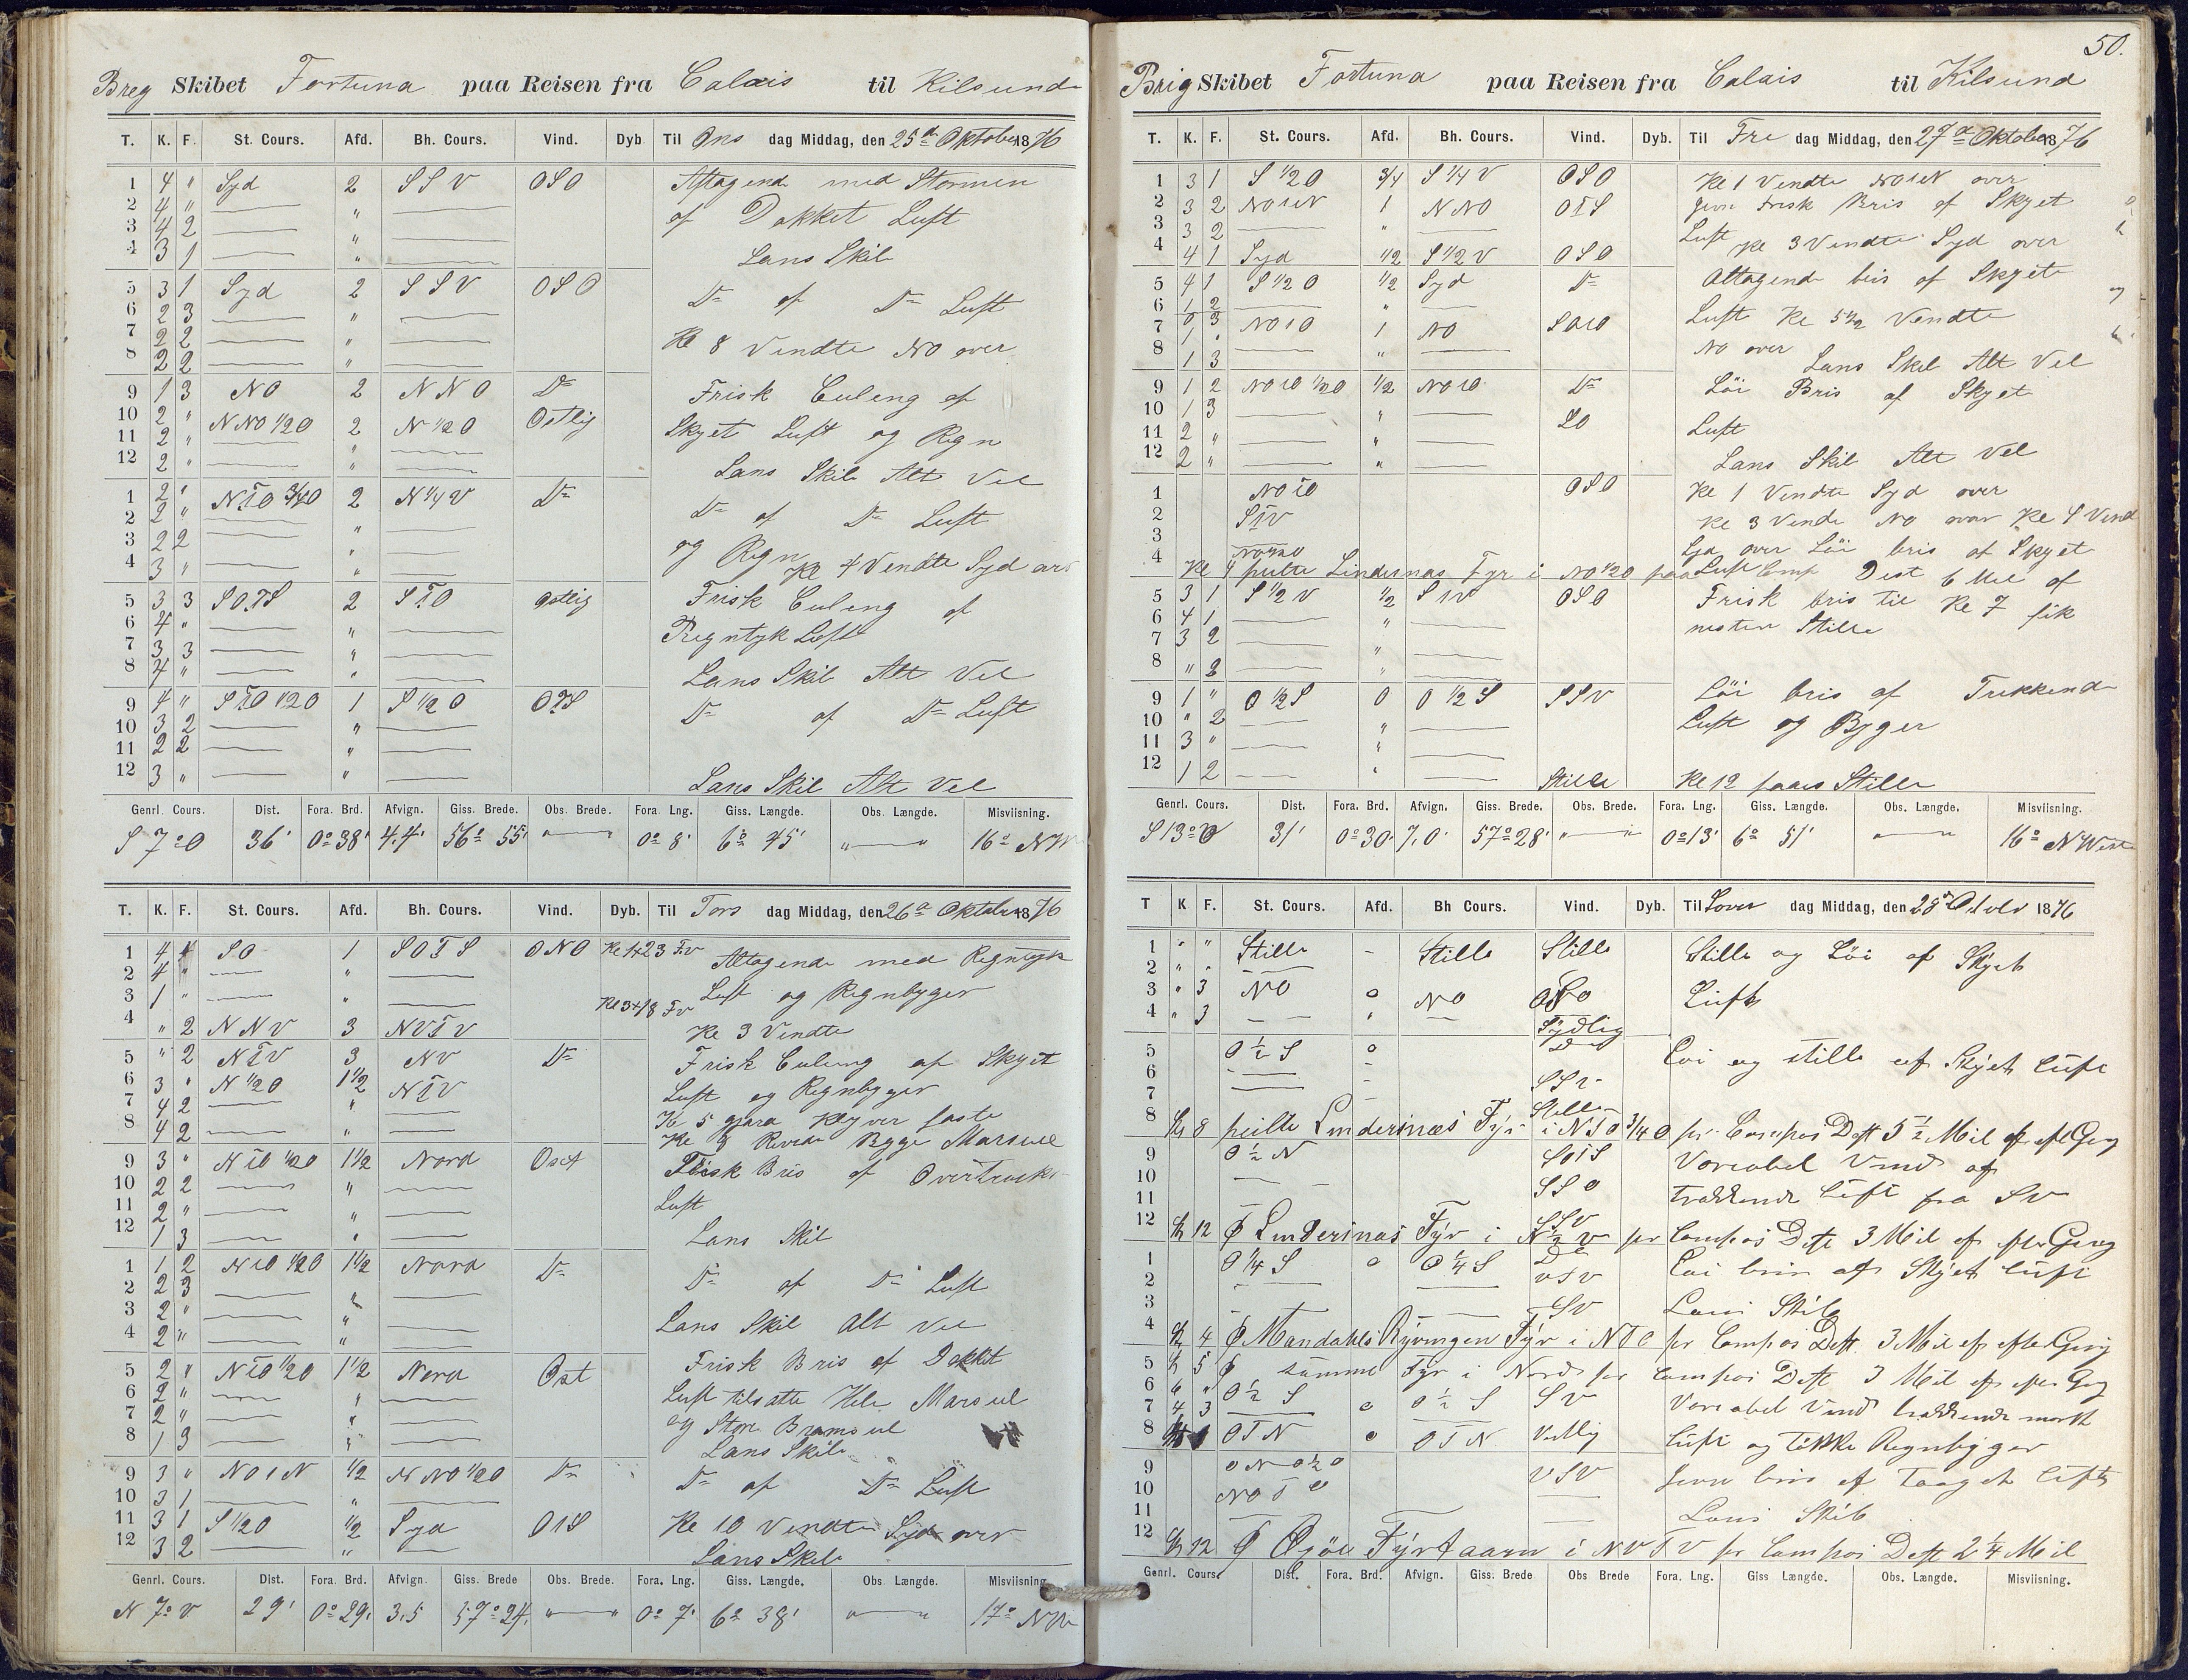 Breg Skibet Fortuna paa Reisen fra Calais til Kilsund
T. K. F. St. Cours. Afd. Bh. Cours. Vind. Dyb Til Ons dag Middag, den 25d Oktober 1876
1 4 " Syd 2 SSV OSO Aftagende med Stormen
2 4 " — " — af Dekket Luft
3 4 2 — " —
4 3 1 — " — Lans Skib
5 3 1 Syd 2 SSV OSO Do af Do Luft
6 2 3 — " —
7 2 2 — " — Kl 8 Vendte NO over
8 2 2 — " —
9 1 3 NO 2 NNO Do Frisk Culing af
10 2 " NNO 1/2 O 2 N 1/2 O Ostlig Skyet Luft og Regn
11 2 " — " —
12 2 " — " — Lans Skib Alt Vel
1 2 " NTO 3/4 O 2 N 1/4 V Do Do af Do Luft
2 2 " — " —
3 2 2 — " — og Regn
4 3 " — " — Kl 4 Vendte Syd over
5 3 3 SOTS 2 STO Ostlig Frisk Culing af
6 4 " — " — Regntyk Luft
7 3 3 — " —
8 4 " — " — Lans Skib Alt Vel
9 4 " STO 1/2 O 1 S 1/2 O OTS Do af Do Luft
10 3 2 — " —
11 2 2 — " —
12 3 " — " — Lans Skib Alt Vel
Genrl. Cours. Dist. Fora. Brd. Afvign. Giss. Brede. Obs. Brede. Fora. Lng. Giss. Længde. Obs. Længde. Misviisning.
S 7° O 36' 0° 38' 4.4' 56° 55' "—" 0° 8' 6° 45' "—" 16° NW
T. K. F. St. Cours. Afd. Bh. Cours. Vind. Dyb. Til Tors dag Middag, den 26d Oktober 1876
1 4 4 SO 1 SOTS ONO Kl 1+23 Fv Altagende med Regntyk
2 4 " — " —
3 1 " — " — Kl 3+18 Fv Luft og Regnbyger
4 " 2 NNV 3 NVTV Kl 3 Vendte
5 " 2 NTV 3 NV Do Frisk Culing af Skyet
6 3 " N 1/2 O 1 1/2 NTV Luft og Regnbyger
7 4 2 — " — Kl 5 gjorde Klyver faste
8 4 2 — " — Kl 8 Begge Marseil
9 3 " NTO 1/2 O 1 1/2 Nord Ost Frisk Bris af Overtrukk
10 2 2 — " — Luft
11 2 " — " —
12 1 3 — " — Lans Skib
1 1 2 NTO 1/2 O 1 1/2 Nord Do Do af Do Luft
2 2 3 — " —
3 2 " — " — Lans Skib Alt Vel
4 2 " — "
5 2 " NTO 1/2 O 1 1/2 Nord Ost Frisk Bris af Dekket
6 2 " — " — Luft tilsatte Hele Marseil
7 2 " — " — og Store Bramseil
8 1 3 — " — Lans Skib
9 3 " NOTN 1/2 NNO 1/2 O Do Do af Do Luft
10 3 1 — " —
11 3 1 S 1/2 O 1/2 Syd OTS Kl 10 Vendte Syd over
12 3 2 — " — Lans Skib
Genrl. Cours. Dist. Fora. Brd. Afvign. Giss. Brede Obs. Brede. Fora. Lng. Giss. Længde. Obs. Længde. Misviisning.
N 7° V 29' 0° 29' 3.5 57° 24' "—" 0° 7' 6° 38' "—" 17° NW
50.
Brig Skibet Fortuna paa Reisen fra Calais til Kilsund
T. K. F. St. Cours. Afd. Bh. Cours. Vind. Dyb. Til Fre dag Middag, den 27d Oktober 1876
1 3 1 S 1/2 O 3/4 S 1/4 V OSO Kl 1 Vendte NOTN over
2 3 2 NOTN 1 NNO OTS Frisk Bris af Skyet
3 3 2 — " — Luft
4 4 1 Syd 1/2 S 1/2 V OSO Kl 3 Vendte Syd over
5 4 1 S 1/2 O 1/2 Syd Do Altagende bris af Skyet
6 1 2 — " — Luft Kl 5 1/2 Vendte
7 1 " NOTO 1 NO SOTO NO over
8 1 3 — " — Lans Skib Alt Vel
9 1 2 NOTO 1/2 O 1/2 NOTO Do Löi Bris af Skyet
10 1 3 — " — SO Luft
11 2 " — " —
12 2 " — " — Lans Skib Alt Vel
1 NOTO OSO Kl 1 Vendte Syd over
2 STV Kl 3 Vendte NO over Kl 4 Vend
3 Syd over Löi bris af Skyet
4 Kl 4 peilte Lindesnas Fyr i NO 1/2 O paa Comp Dist 6 Mil af Luft
5 3 1 S 1/2 V 1/2 STV OSO Frisk bris til Kl 7 fik
6 4 1 — " — nesten Stille
7 3 2 — " —
8 " 2 — " —
9 1 " O 1/2 S 0 O 1/2 S SSV Löi bris af Trekkende
10 " 2 — " — Luft og Byger
11 3 " — " —
12 1 2 — " — Stille Kl 12 Stille
Genrl. Cours. Dist. Fora. Brd. Afvign. Giss. Brede. Obs. Brede. Fora. Lng. Giss. Længde. Obs. Længde. Misviisning.
S 13° O 31' 0° 30' 7,0' 57° 28' "—" 0° 13' 6° 51' "—" 16° NWest
T K F. St. Cours. Afd. Bh Cours. Vind. Dyb. Til Löver dag Middag, den 28d 1876
1 " " Stille – Stille Stille Stille og Löi af Skyet
2 " " —
3 " 3 NO 0 NO Luft
4 " 3 — " — Sydlig
5 O 1/2 S 0 Löi og stille af Skyet Luft
6 —
7 — SSV
8 Kl 8 peilte Lindesnes Fyr i NTO 3/4 O pr. Compas Dist 5 1/2 Mil af efter Gisg
9 O 1/2 N SOTS Variabel Vind af
10 — SSO trækkende Luft fra SV
11
12 Kl 12 Lindesnas Fyr i N 1/2 V pr Compas Dist 3 Mil af efter Gisg
1 O 1/4 S 0 O 1/4 S Löi bris af Skyet Luft
2 — VSV
3 — SV Lans Skib
4 Kl 4 Mandahls Ryvingen Fyr i NTO pr Compas Dist. 3 Mil af efter Gisg
5 Kl 5 samme Fyr i Nord pr Compas Dist 3 Mil af efter Gisg
6 4 " O 1/2 S 0 O 1/2 S SV Variabel Vind trækkende mørk
7 4 3 —
8 OTN 0 OTN Vestlig Luft og tikke Regnbyger
9 VSV bris af Taaget Luft
10 NOTO —
11 — Lans Skib
12 Kl 12 Oxöe Fyrtaarn i NVTV pr Compas Dist 2 1/4 Mil
Genrl. Cours. Dist. Fora. Brd. Afvign. Giss. Brede Obs Brede Fora. Lng. Giss Længde. Obs. Længde. Misviisning.